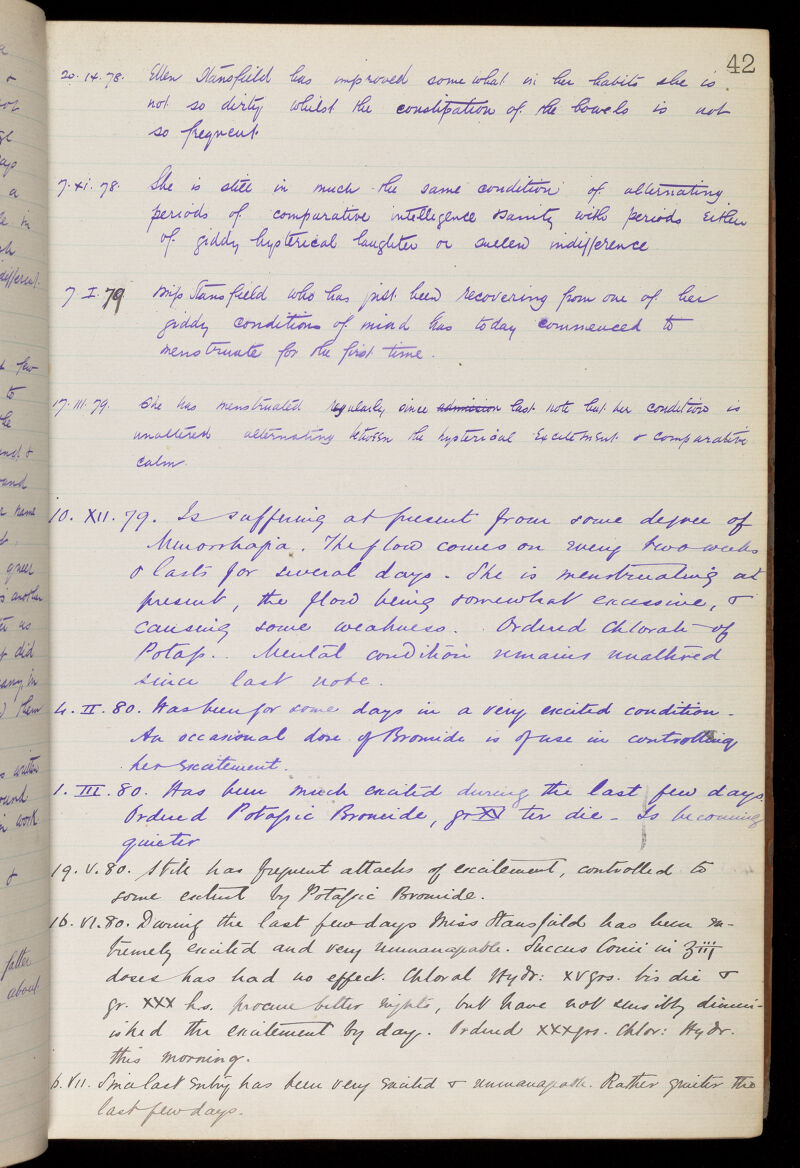 42
20.ix.78. Ellen Stansfield has improved somewhat in her habits she is
not so dirty whilst the constipation of the bowels is not
so frequent
7.xi.78. She is still in much the same condition of alternating
periods of comparative intelligence & sanity with periods either
of giddy hysterical laughter or sullen indifference
7 I 79 Miss Stansfield who has just been recovering from one of her
giddy conditions of mind has today commenced to
menstruate for the first time.
17.III.79. She has menstruated regularly since admission last note but her condition is
unaltered alternating between the hysterical excitement & comparative
calm.
10. XII. 79. Is suffering at present from some degree of
Menorrhagia. The flow comes on every two weeks
& lasts for several days. She is menstruating at
present, the flow being somewhat excessive, &
causing some weakness. Ordered Chlorate of
Potass. Mental condition remains unaltered
since last note.
4. II. 80. Has been for some days in a very excited condition.
An occasional dose of Bromide is of use in controlling
her excitement.
1. III. 80. Has been much excited during the last few days.
Ordered Potassic Bromide, gr XV ter die – Is becoming
quieter
19. V. 80. Still has frequent attacks of excitement, controlled to
some extent by Potassic Bromide.
16. VI. 80. During the last few days Miss Stansfield has been ex-
tremely excited and very unmanageable. Succus Conii in ʒiii
doses has had no effect. Chloral Hydr: XV grs. bis die &
gr. XXX h.s. procure better nights, but have not sensibly dimin-
ished the excitement by day. Ordered XXX grs. Chlor: Hydr.
this morning.
6. VII. Since last entry has been very excited & unmanageable. Rather quieter the
last few days.